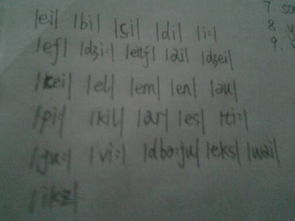 |ei| |bi| |çi| |di| |i:|
|ef| |dʒi:| |eitʃ| |ai| |dʒei|
|kei| |el| |em| |en| |əu|
|pi:| |kil| |ar| |es| |ti:|
|ju:| |vi:| |dbə:ju| |eks| |wai|
|ikz|
7. so
8. y
9.